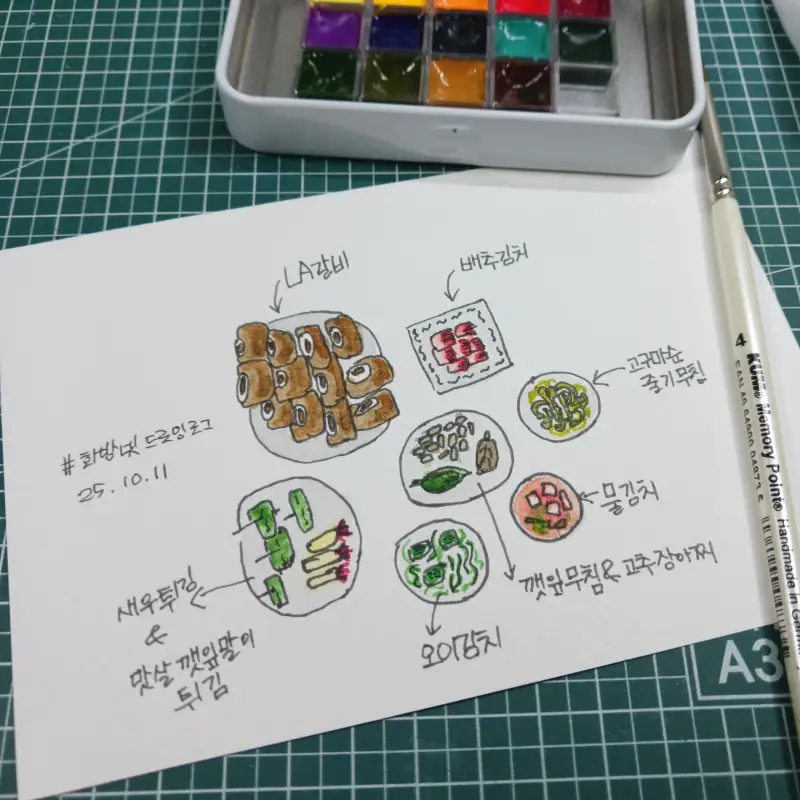 LA갈비
배추김치
고구마순
줄기무침
#화방넷 드로잉로그
25.10.11
물김치
깻잎무침 & 고추장아찌
새우튀김
&
맛살 깻잎말이
튀김
오이김치
A3
4 KUM® Memory Point® Handmade in Germany